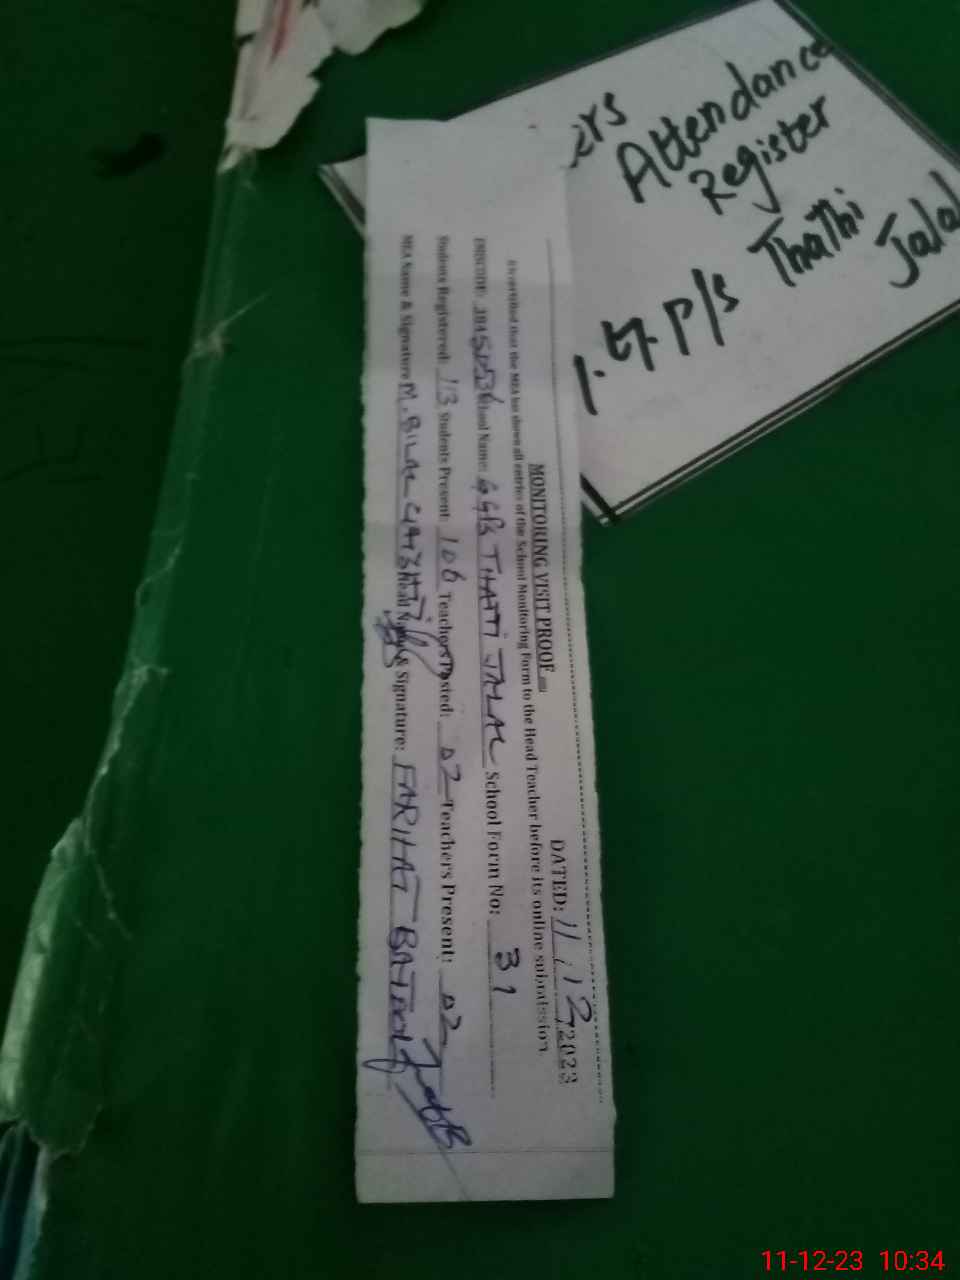 ers
Attendance
Register
G.G.P/S Thathi
Jalal
MONITORING VISIT PROOF
DATED: 11.12/2023
It is certified that the MEA has shown all entries of the School Monitoring Form to the Head Teacher before its online submission.
EMISCODE: School Name: GGPS THATTI JALAL School Form No: 31
Students Registered: 113 Students Present: 106 Teachers Posted: 02 Teachers Present: 02
MEA Name & Signature M. BILAL Head Name & Signature: FARHAT BATOOL
11-12-23 10:34